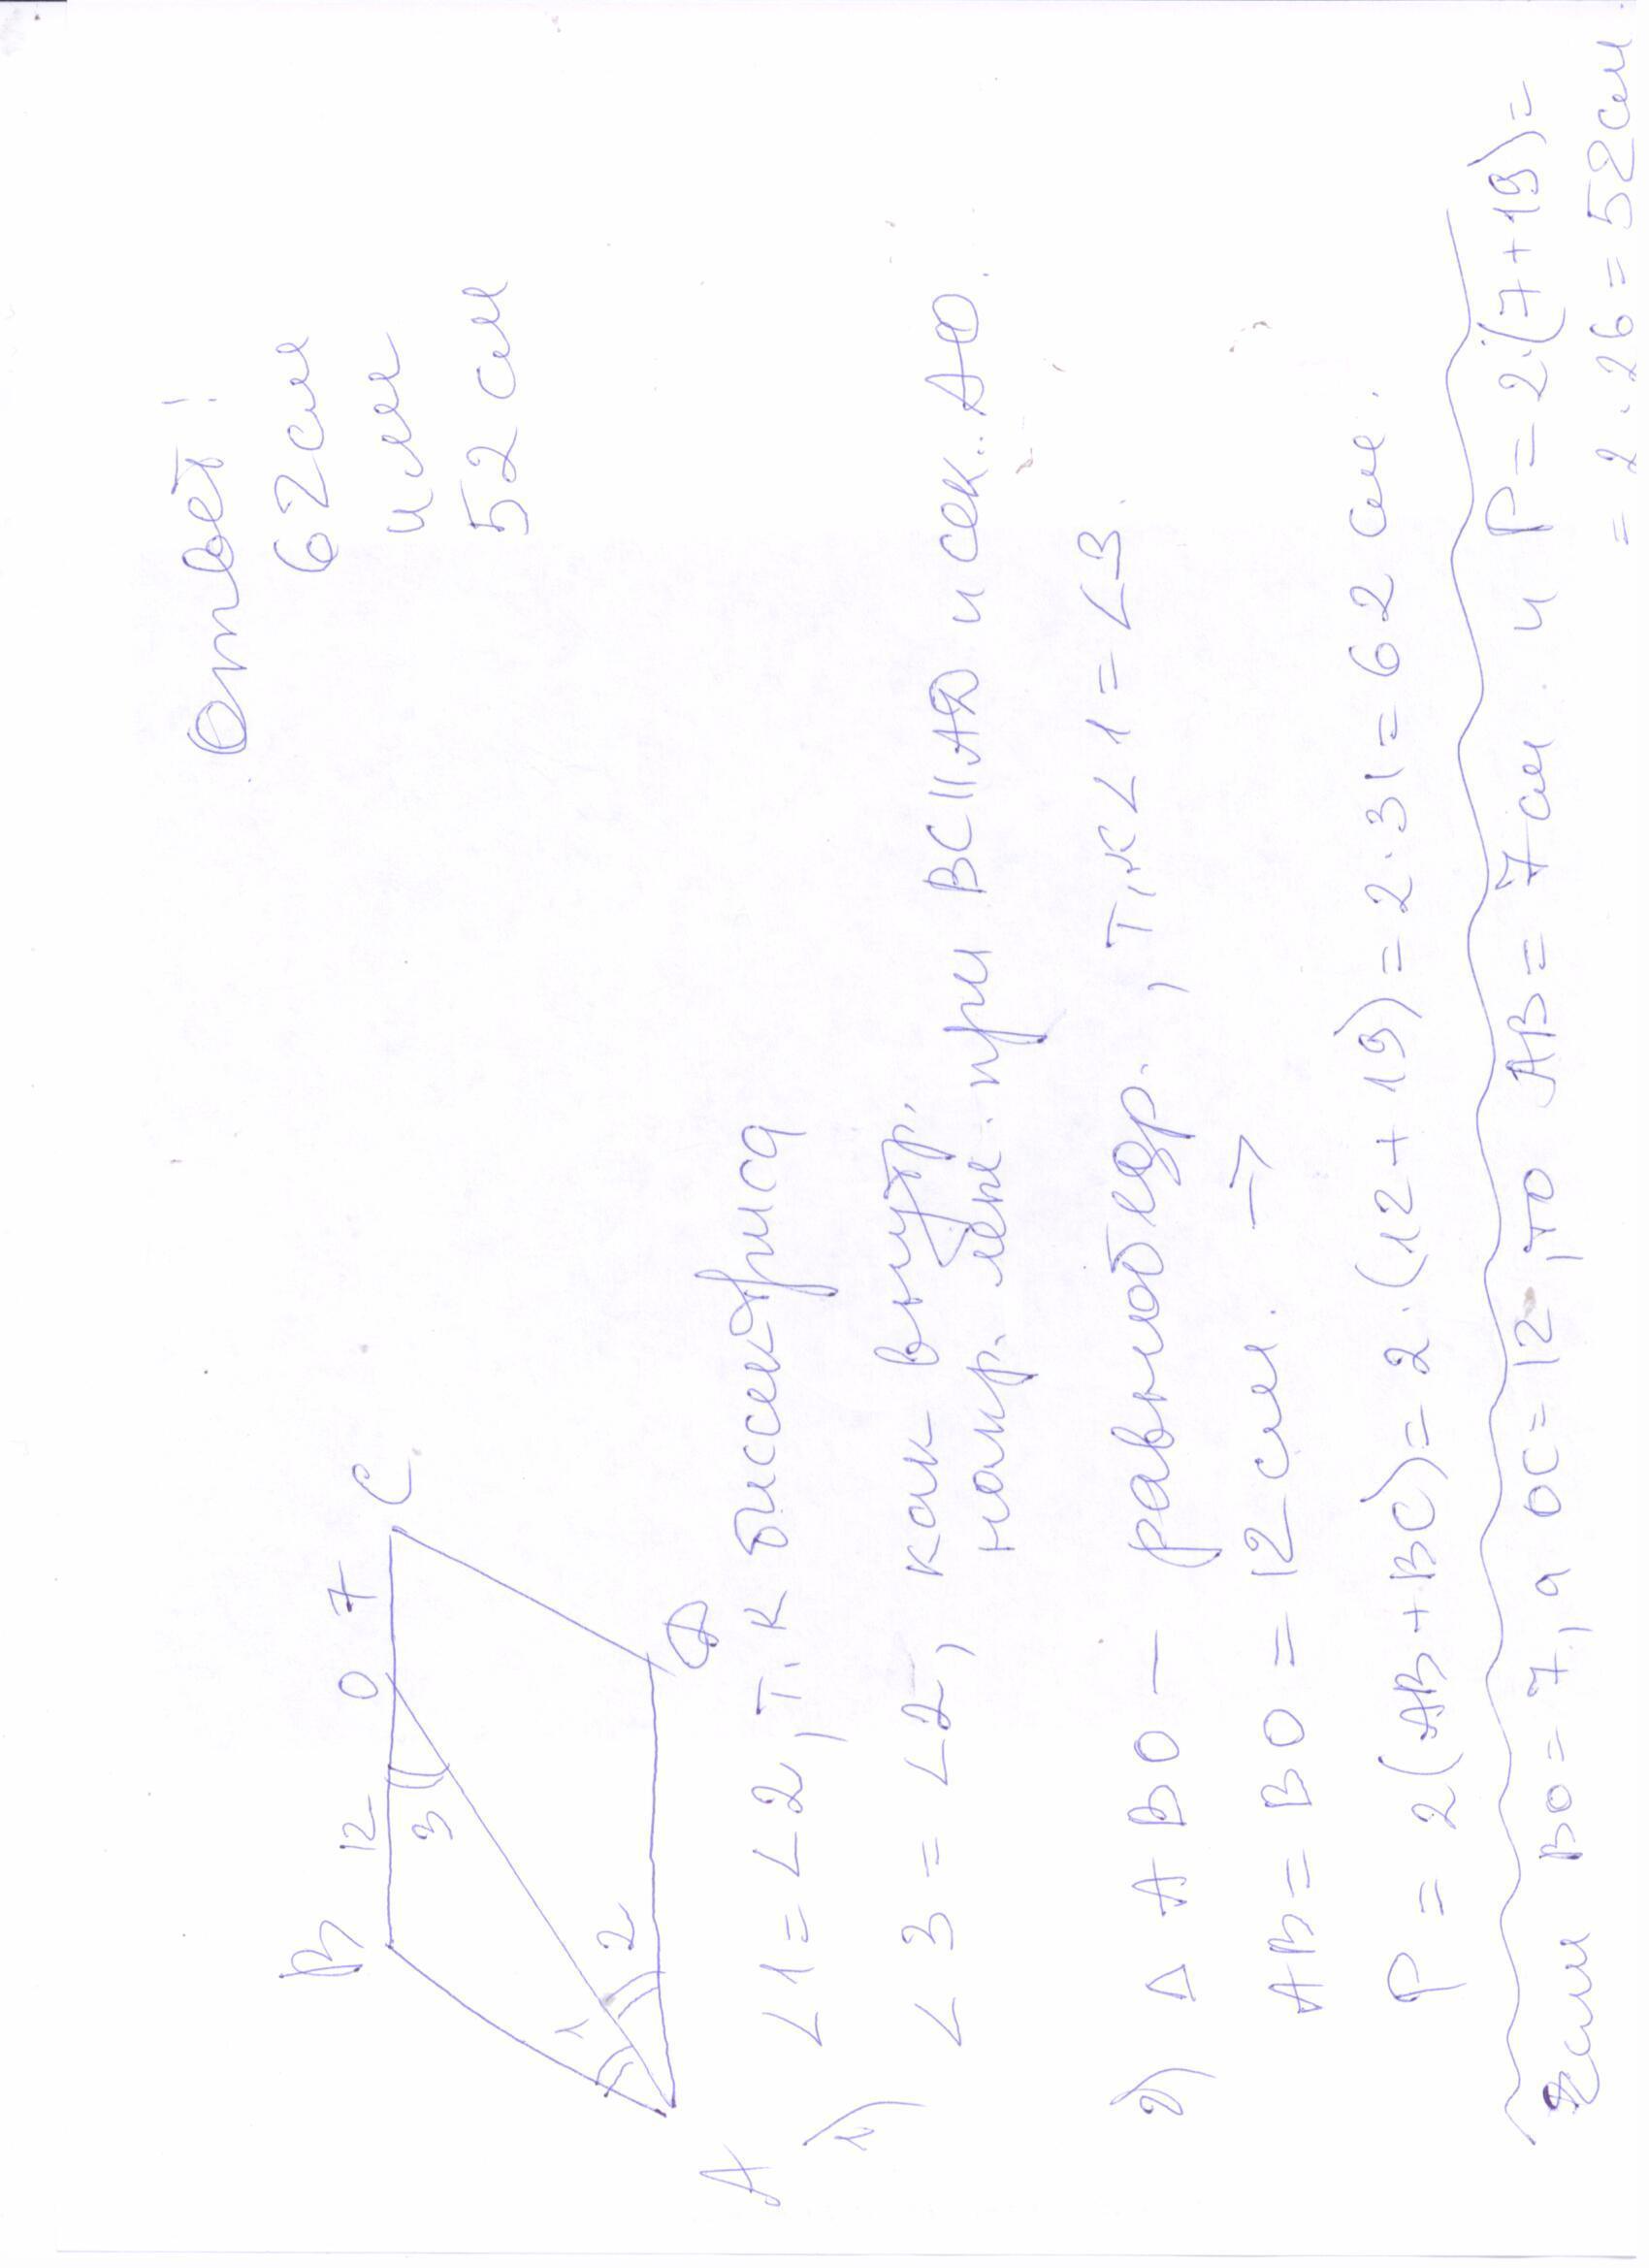 Ответ:
62 см
или
52 см
B 12 O 7 C
3
1 2
A D
1) ∠1 = ∠2, т.к биссектриса
∠3 = ∠2, как внутр.
накр. леж. при BC||AD и сек. AO.
2) Δ ABO - равнобедр., т.к ∠1 = ∠3.
AB = BO = 12 см. →
P = 2(AB+BC) = 2·(12+19) = 2·31 = 62 см.
Если BO = 7, а OC = 12, то AB = 7 см и P = 2·(7+19) =
= 2·26 = 52 см.